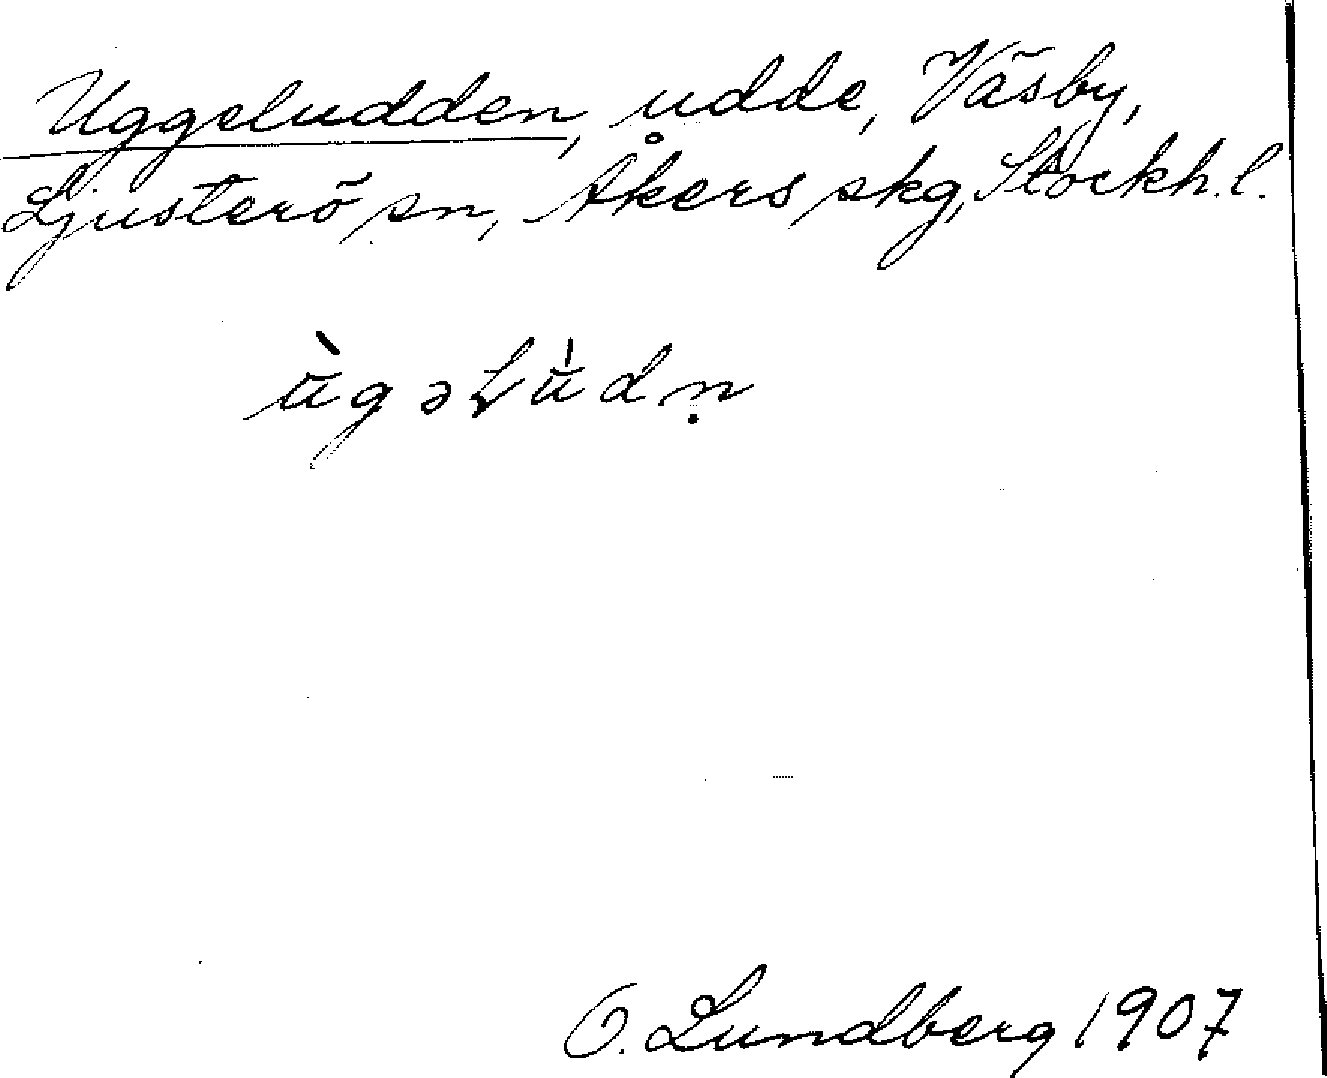 Uggeludden, udde, Väsby,
Ljusterö sn, Åkers skg, Stockh. l.
ù̄gəłū̍dṇ
O. Lundberg 1907